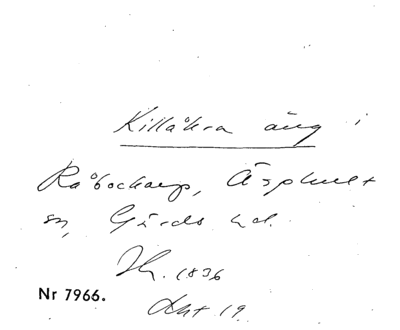 Killåkra äng i
Råbockarp, Äsphult
sn, Gärds hd.
Sk. 1836
Nr 7966.
Akt 19.